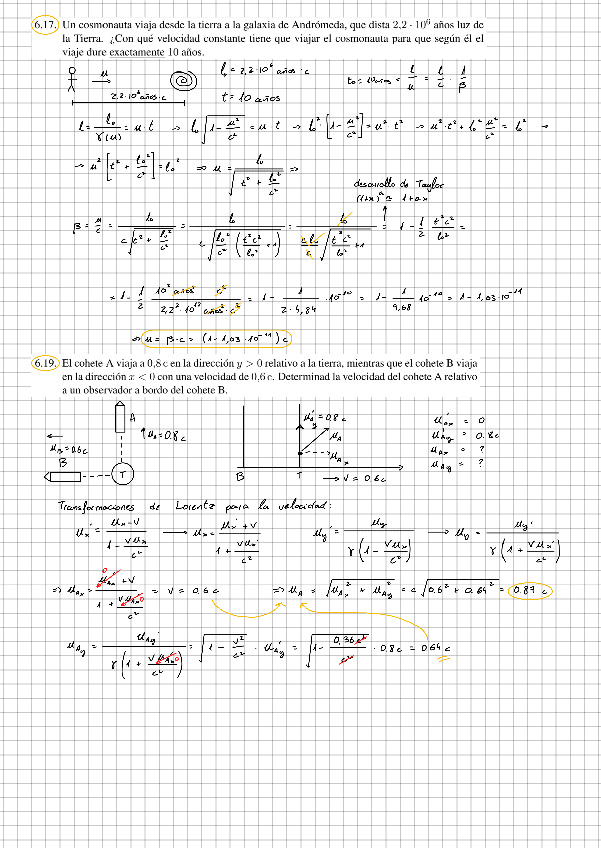 6.17. Un cosmonauta viaja desde la tierra a la galaxia de Andrómeda, que dista 2,2 · 10⁶ años luz de
la Tierra. ¿Con qué velocidad constante tiene que viajar el cosmonauta para que según él el
viaje dure exactamente 10 años.
u
2,2·10⁶ años·c
l₀ = 2,2·10⁶ años·c
t = 10 años
t₀ = 10 años = l/u = l/c · 1/β
l = l₀/γ(u) = u t → l₀ √(1 - u²/c²) = u t → l₀² [1 - u²/c²] = u² t² → u²·t² + l₀² u²/c² = l₀² →
→ u² [t² + l₀²/c²] = l₀² ⇒ u = l₀/√(t² + l₀²/c²) ⇒
desarrollo de Taylor
(1+x)^a ≈ 1+ax
β = u/c = l₀/(c√(t² + l₀²/c²)) = l₀/(c√(l₀²/c² (t²c²/l₀² + 1))) = l₀/((c l₀/c)√(t²c²/l₀² + 1)) = 1 - 1/2 t²c²/l₀² =
= 1 - 1/2 (10² años² c²)/(2,2²·10¹² años²·c²) = 1 - 1/(2·4,84) · 10⁻¹⁰ = 1 - 1/9,68 10⁻¹⁰ = 1 - 1,03·10⁻¹¹
⇒ u = β·c = (1 - 1,03·10⁻¹¹) c
6.19. El cohete A viaja a 0,8 c en la dirección y > 0 relativo a la tierra, mientras que el cohete B viaja
en la dirección x < 0 con una velocidad de 0,6 c. Determinad la velocidad del cohete A relativo
a un observador a bordo del cohete B.
A
u_A = 0.8c
u_B = 0.6c
B
T
u'_A = 0.8c
y
u_A
u_Ax
B
T
→ V = 0.6c
u'_Ax = 0
u'_Ay = 0.8c
u_Ax = ?
u_Ay = ?
Transformaciones de Lorentz para la velocidad:
u_x' = (u_x - V)/(1 - V u_x/c²) → u_x = (u_x' + V)/(1 + V u_x'/c²) u_y' = u_y/(γ(1 - V u_x/c²)) → u_y = u_y'/(γ(1 + V u_x'/c²))
⇒ u_Ax = (u'_Ax 0 + V)/(1 + V u'_Ax 0/c²) = V = 0.6c ⇒ u_A = √(u_Ax² + u_Ay²) = c√(0.6² + 0.64²) = 0.87 c
u_Ay = u_Ay'/(γ(1 + V u'_Ax 0/c²)) = √(1 - V²/c²) · u'_Ay = √(1 - 0,36 c²/c²) · 0.8c = 0.64 c